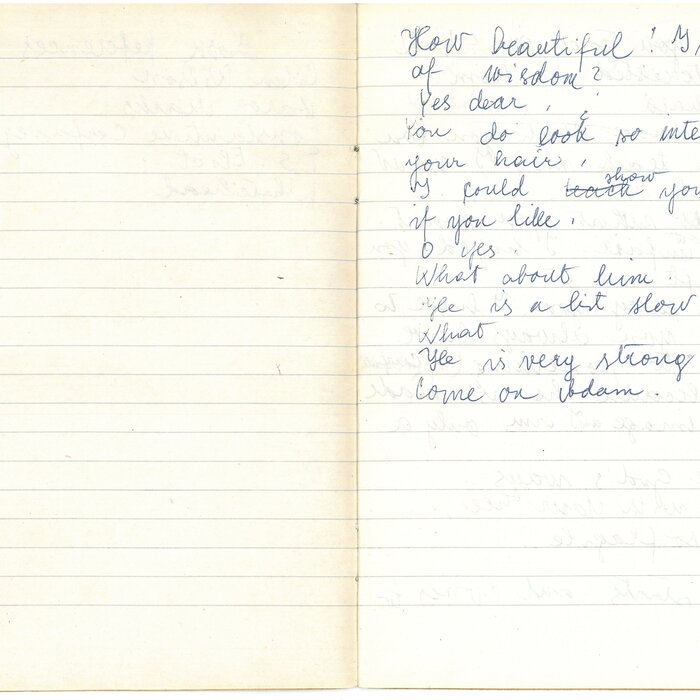 How beautiful! Is
of wisdom?
Yes dear,
You do look so inte
your hair,
I could teach show you
if you like.
O yes.
What about him.
He is a bit slow
What.
He is very strong
Come on Adam.